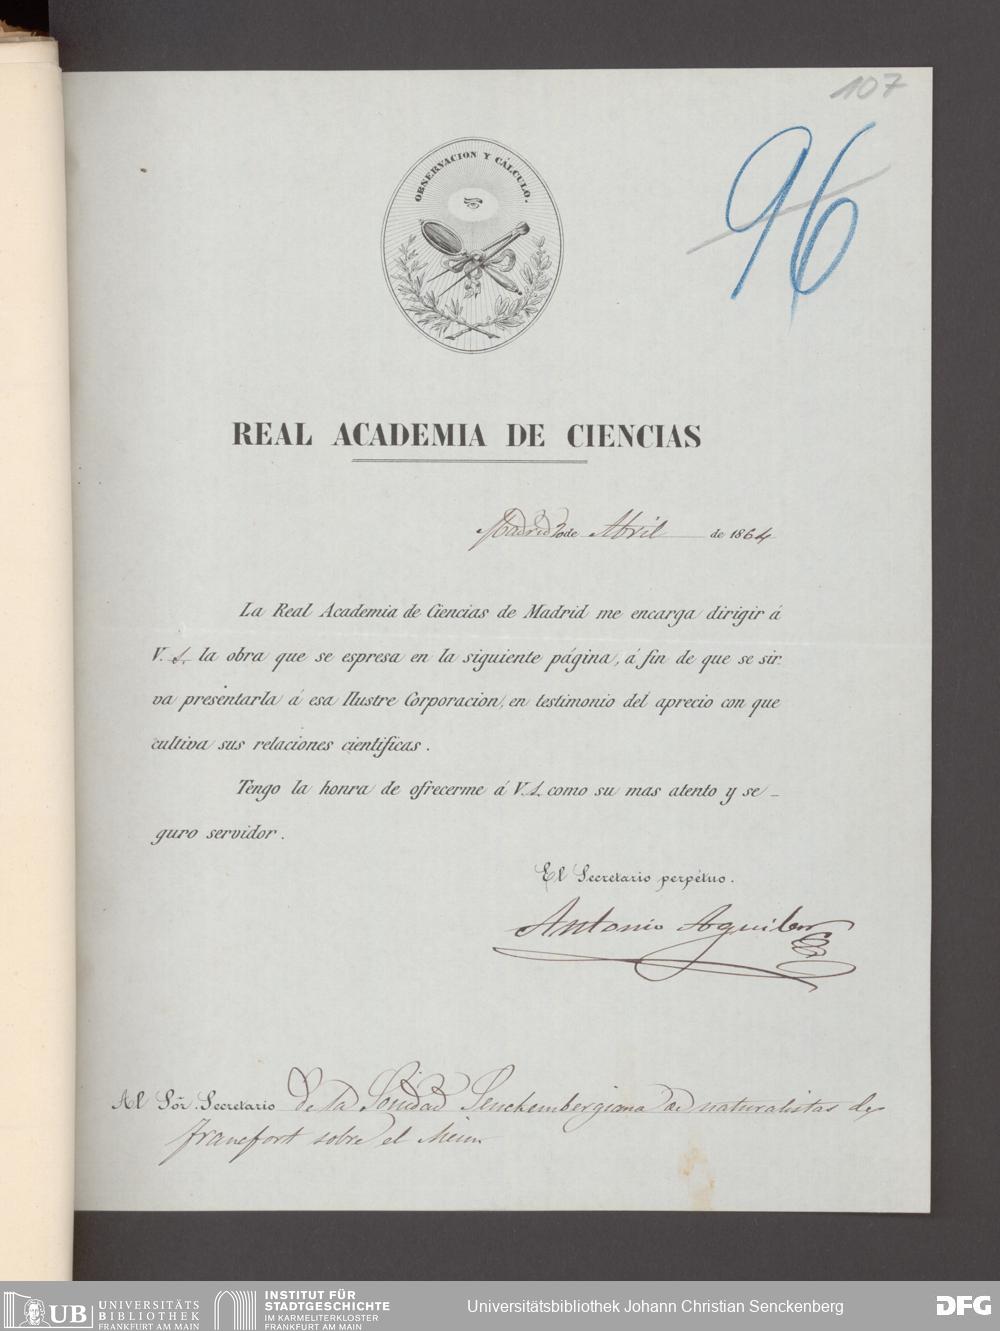 107
96
OBSERVACION Y CÁLCULO.
REAL ACADEMIA DE CIENCIAS
Madrid 20 de Abril de 1864
La Real Academia de Ciencias de Madrid me encarga dirigir á
V. S. la obra que se espresa en la siguiente página, á fin de que se sir-
va presentarla á esa Ilustre Corporacion, en testimonio del aprecio con que
cultiva sus relaciones científicas.
Tengo la honra de ofrecerme á V. S. como su mas atento y se-
guro servidor.
El Secretario perpétuo.
Antonio Aguilar
Al Sōr. Secretario de la Sociedad Senckembergiana de naturalistas de
Francfort sobre el Mein
UB UNIVERSITÄTS
BIBLIOTHEK
FRANKFURT AM MAIN
INSTITUT FÜR
STADTGESCHICHTE
IM KARMELITERKLOSTER
FRANKFURT AM MAIN
Universitätsbibliothek Johann Christian Senckenberg
DFG